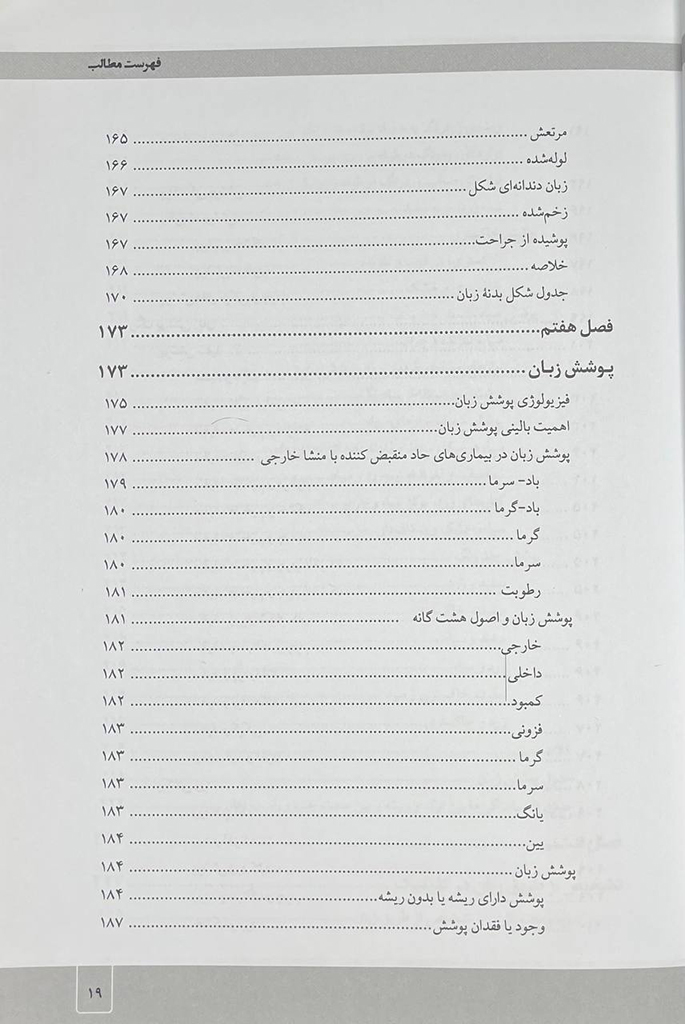 فهرست مطالب
مرتعش ............ ۱۶۵
لوله‌شده ............ ۱۶۶
زبان دندانه‌ای شکل ............ ۱۶۷
زخم‌شده ............ ۱۶۷
پوشیده از جراحت ............ ۱۶۷
خلاصه ............ ۱۶۸
جدول شکل بدنهٔ زبان ............ ۱۷۰
فصل هفتم ............ ۱۷۳
پوشش زبان ............ ۱۷۳
فیزیولوژی پوشش زبان ............ ۱۷۵
اهمیت بالینی پوشش زبان ............ ۱۷۷
پوشش زبان در بیماری‌های حاد منقبض کننده با منشا خارجی ............ ۱۷۸
باد- سرما ............ ۱۷۹
باد-گرما ............ ۱۸۰
گرما ............ ۱۸۰
سرما ............ ۱۸۰
رطوبت ............ ۱۸۱
پوشش زبان و اصول هشت گانه ............ ۱۸۱
خارجی ............ ۱۸۲
داخلی ............ ۱۸۲
کمبود ............ ۱۸۲
فزونی ............ ۱۸۳
گرما ............ ۱۸۳
سرما ............ ۱۸۳
یانگ ............ ۱۸۳
یین ............ ۱۸۴
پوشش زبان ............ ۱۸۴
پوشش دارای ریشه یا بدون ریشه ............ ۱۸۴
وجود یا فقدان پوشش ............ ۱۸۷
۱۹